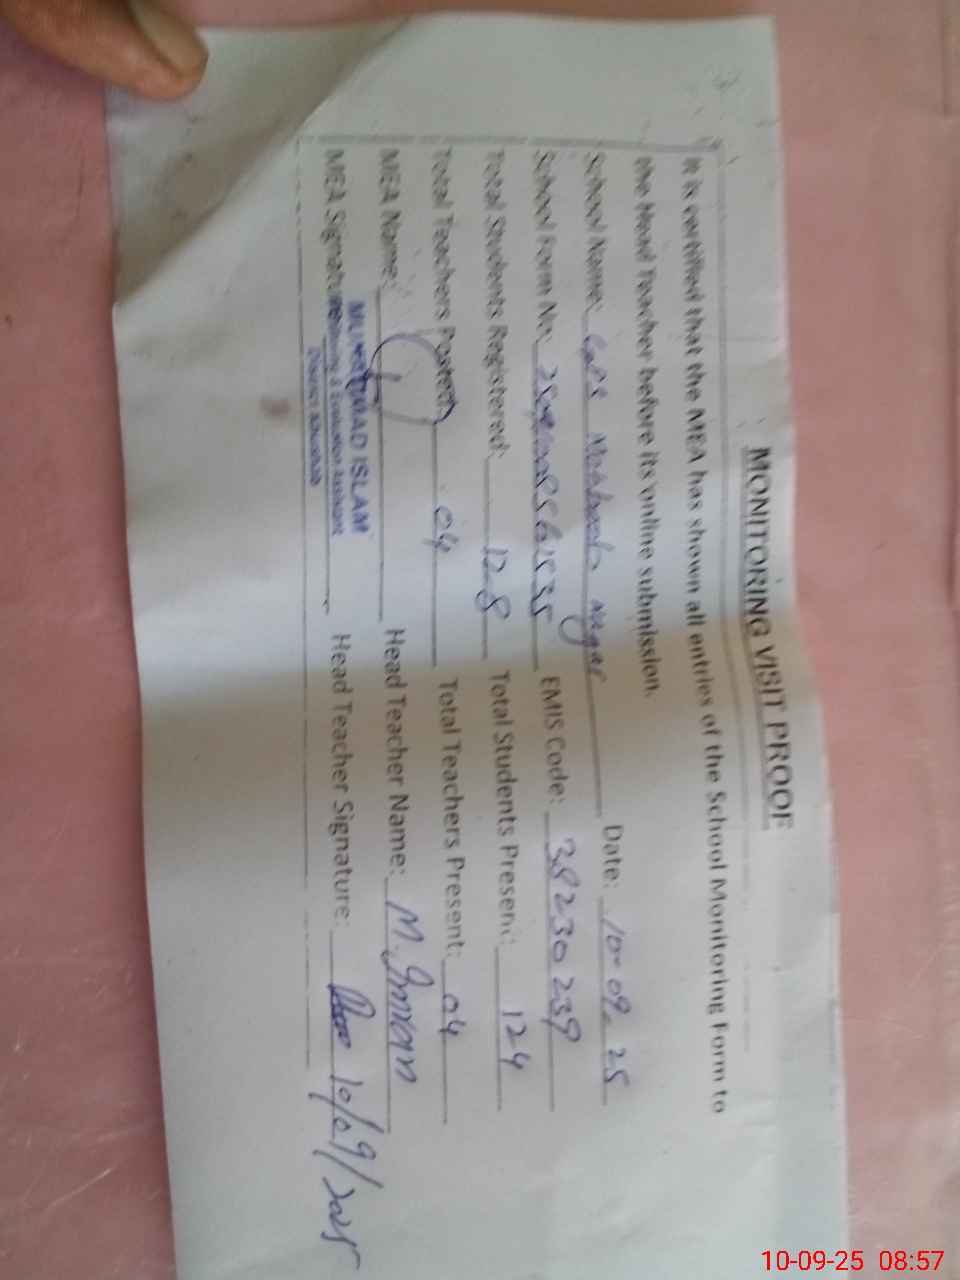 MONITORING VISIT PROOF
It is certified that the MEA has shown all entries of the School Monitoring Form to
the Head Teacher before its online submission.
School Name: Nagar Date: 10-09-25
School Form No: EMIS Code: 38230239
Total Students Registered: 128 Total Students Present: 124
Total Teachers Posted: 04 Total Teachers Present: 04
MEA Name: Head Teacher Name: M. Imran
ISLAM
MEA Signature: Head Teacher Signature: 10/09/2025
Monitoring & Evaluation Assistant
District
10-09-25 08:57